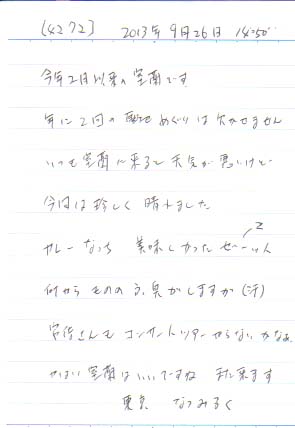 (4272) 2013年9月26日 14:50
今年2月以来の室蘭です
年に2回の 聖地めぐりは欠かせません
いつも室蘭に来ると天気が悪いけど
今回は珍しく晴れました
カレーなっち 美味しかったぜーーい
2
何から ものの 臭がしますか(汗)
安倍さんも コンサートツアーやらないかなぁ
やはり室蘭はいいですね また来ます
東京 なつみるく